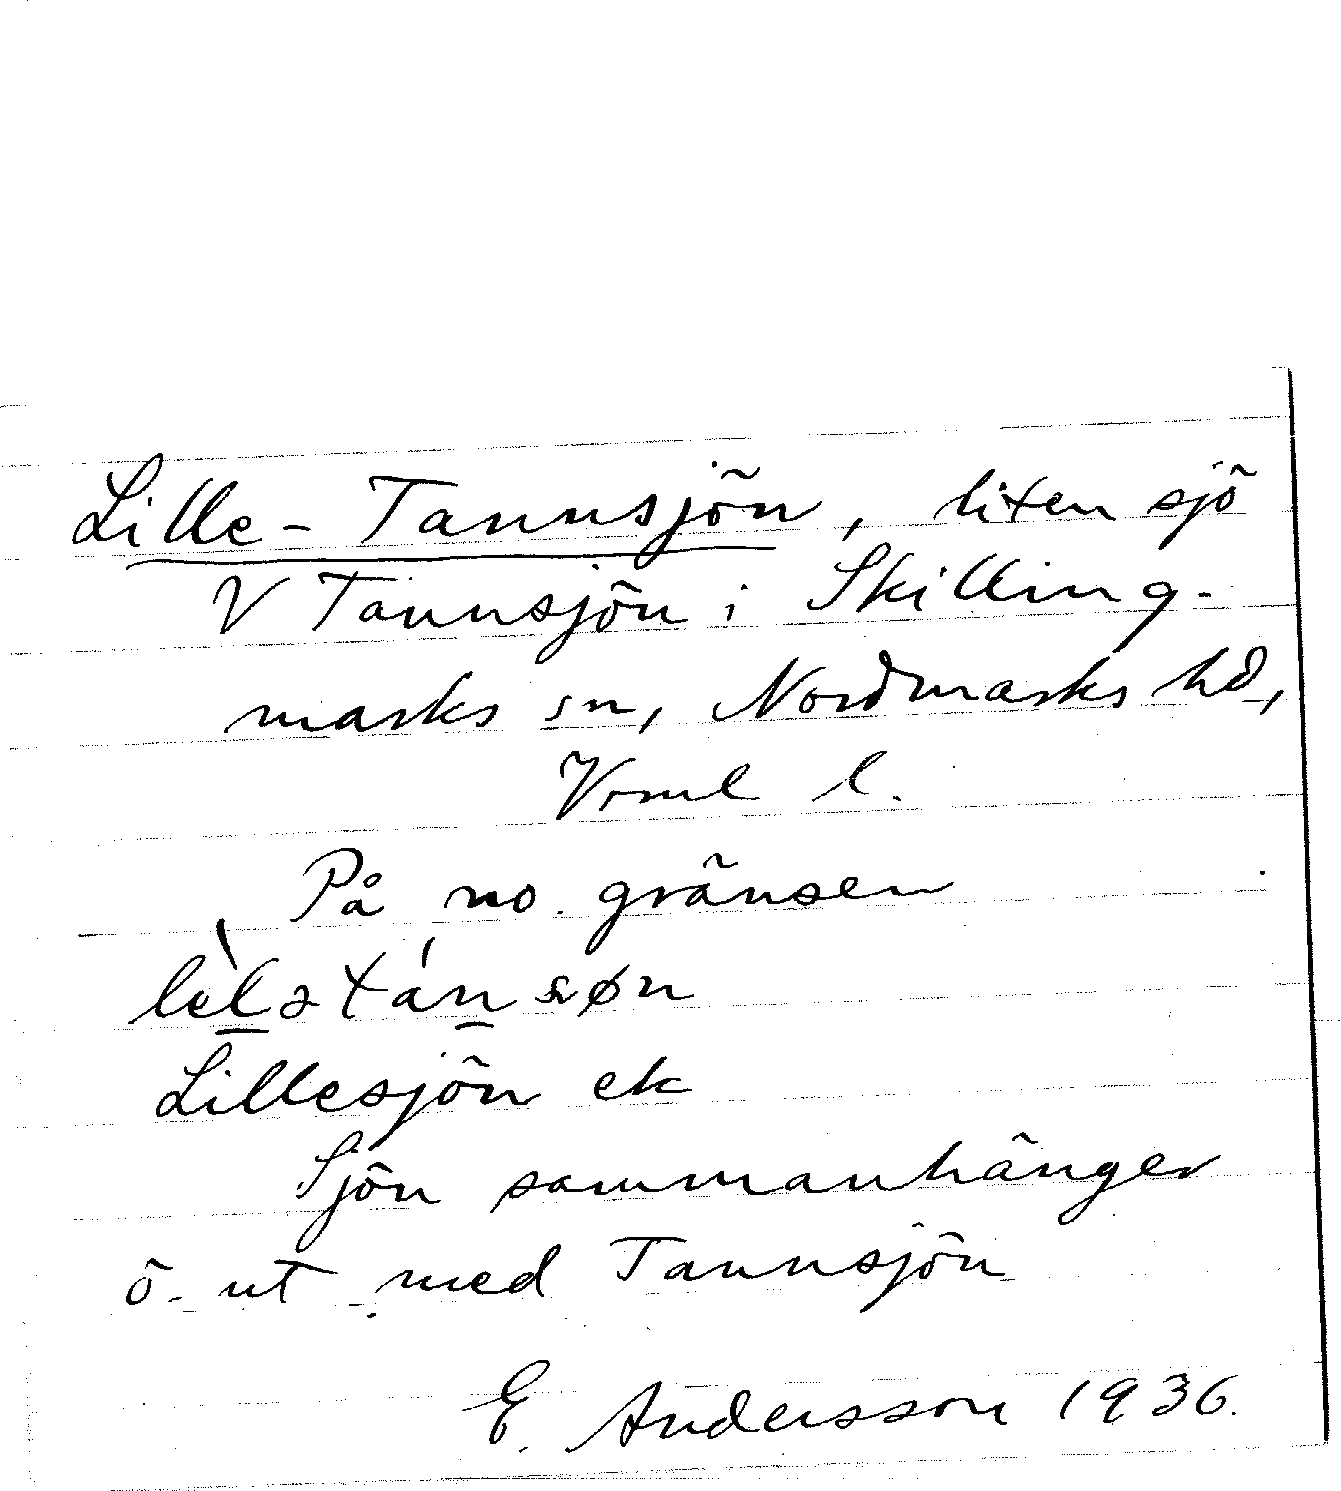 Lille-Tannsjön, liten sjö
V Tannsjön i Skilling-
marks sn, Nordmarks hd,
Vrml l.
På no. gränsen
Lillesjön ek
Sjön sammanhänger
ö. ut med Tannsjön
E. Andersson 1936.